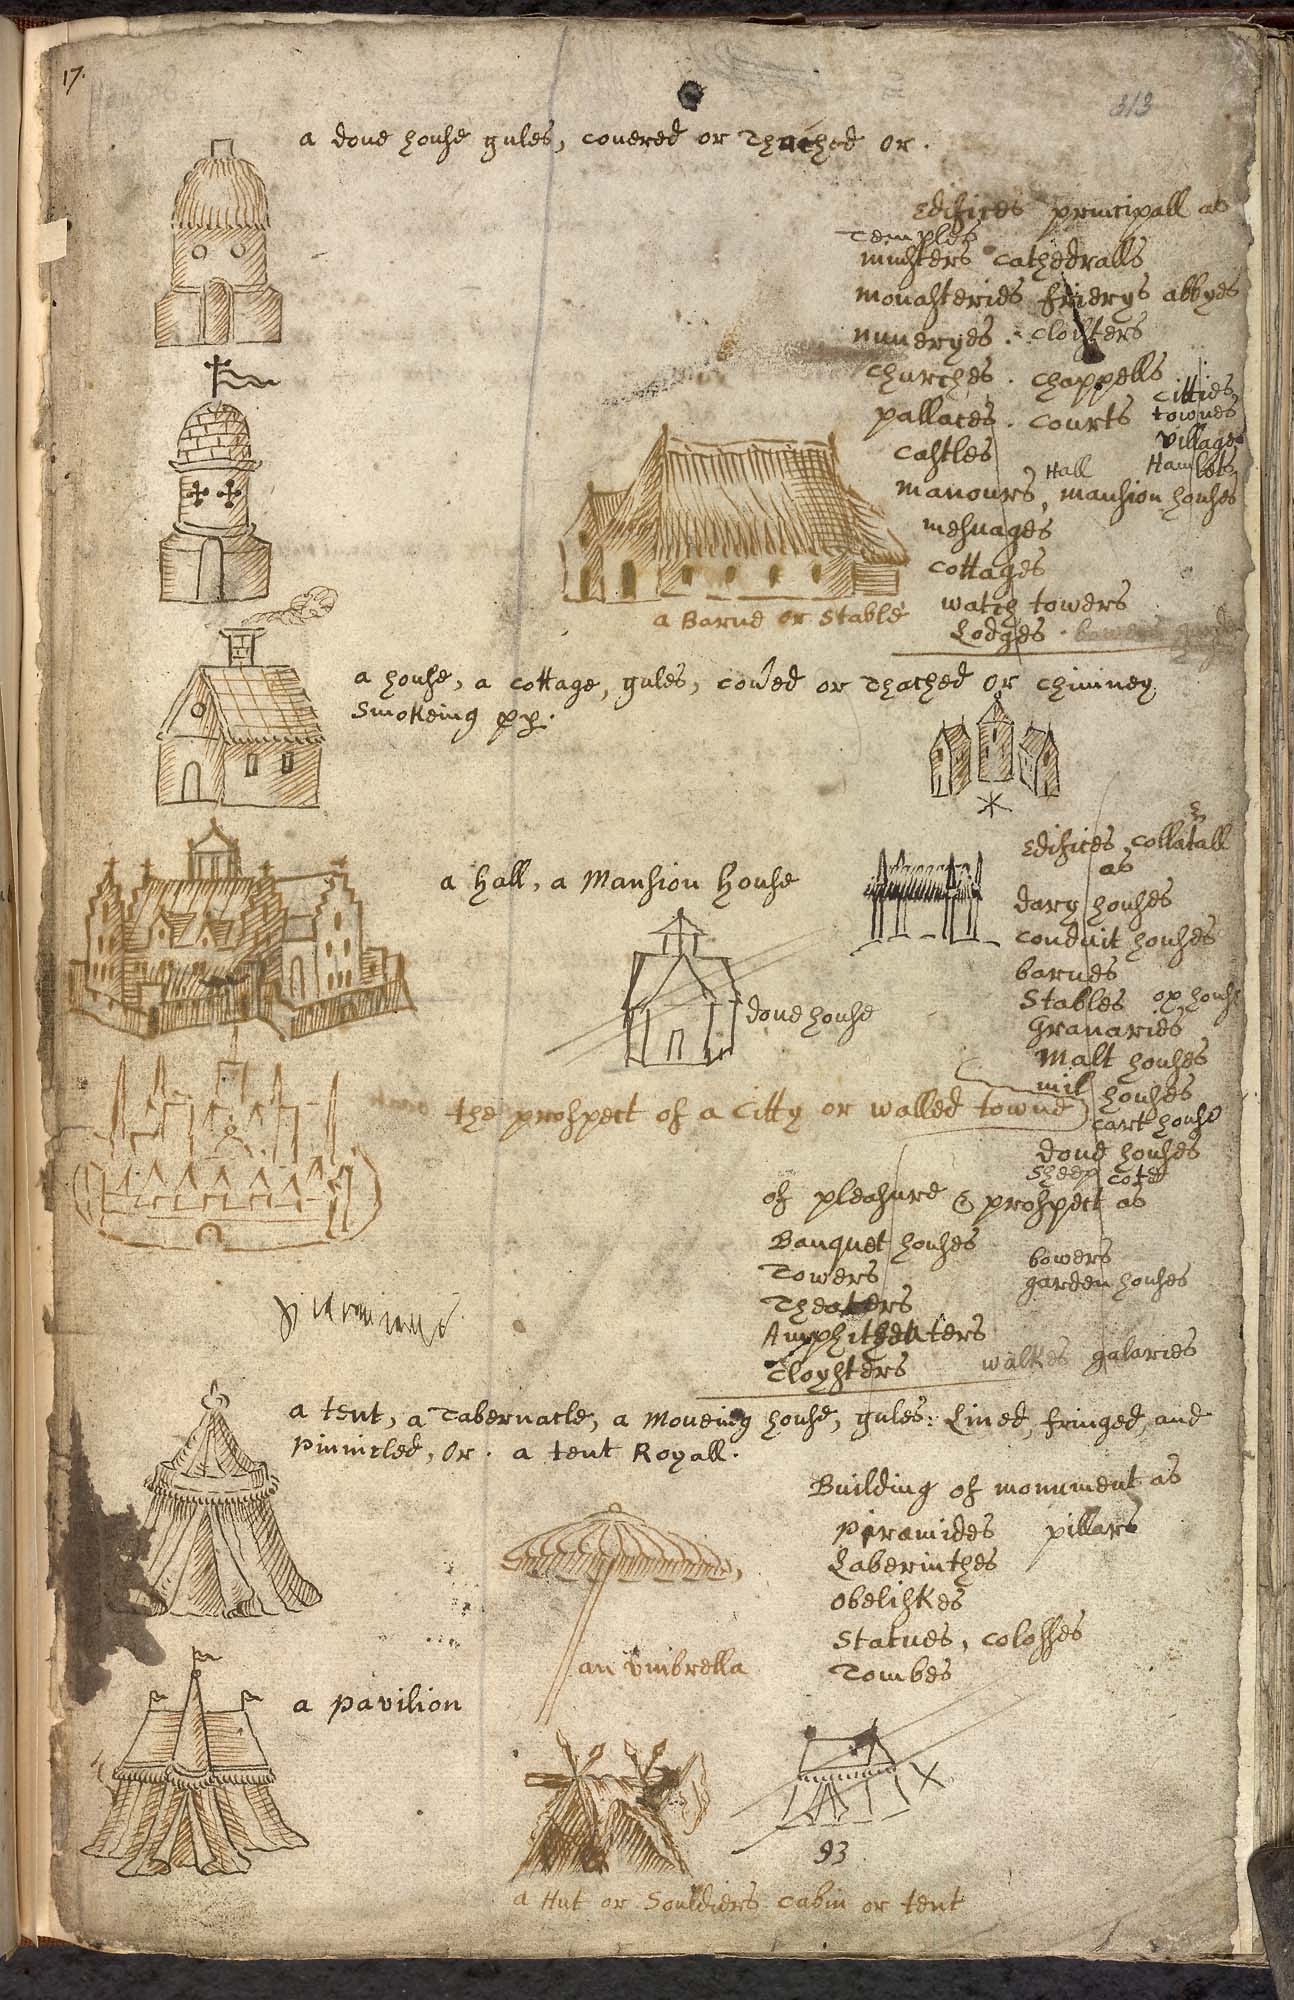 17.
313
a doue house gules, couered or Thatched or.
Edifices principall as
Temples
minsters cathedralls
monasteries frierys abbyes
nuneryes . cloisters
churches . chappells
pallaces . courts
citties
townes
villages
castles
Hall Hamlets
manours, mansion houses
mesuages
cottages
watch towers
Lodges . bowers
a Barne or Stable
a house, a cottage, gules, cou'ed or Thatched Or chimney
Smokeing pp.
a hall, a Mansion House
Edifices collatall
as
dary houses
conduit houses
barnes
Stables ox house
Granaries
Malt houses
mil houses
cart house
doue houses
Sheep cote
doue house
the prospect of a Citty or walled towne
of pleasure & prospect as
Banquet houses
bowers
Towers
garden houses
Theaters
Amphitheaters
Cloysters walkes galaries
a tent, a Tabernacle, a Moueing house, gules: Lined, fringed, and
Pinnicled, Or. a tent Royall.
Building of monument as
Piramides pillars
Laberinthes
obeliskes
Statues, colosses
Tombes
an vmbrella
a Pavilion
93
a Hut or Souldiers cabin or tent